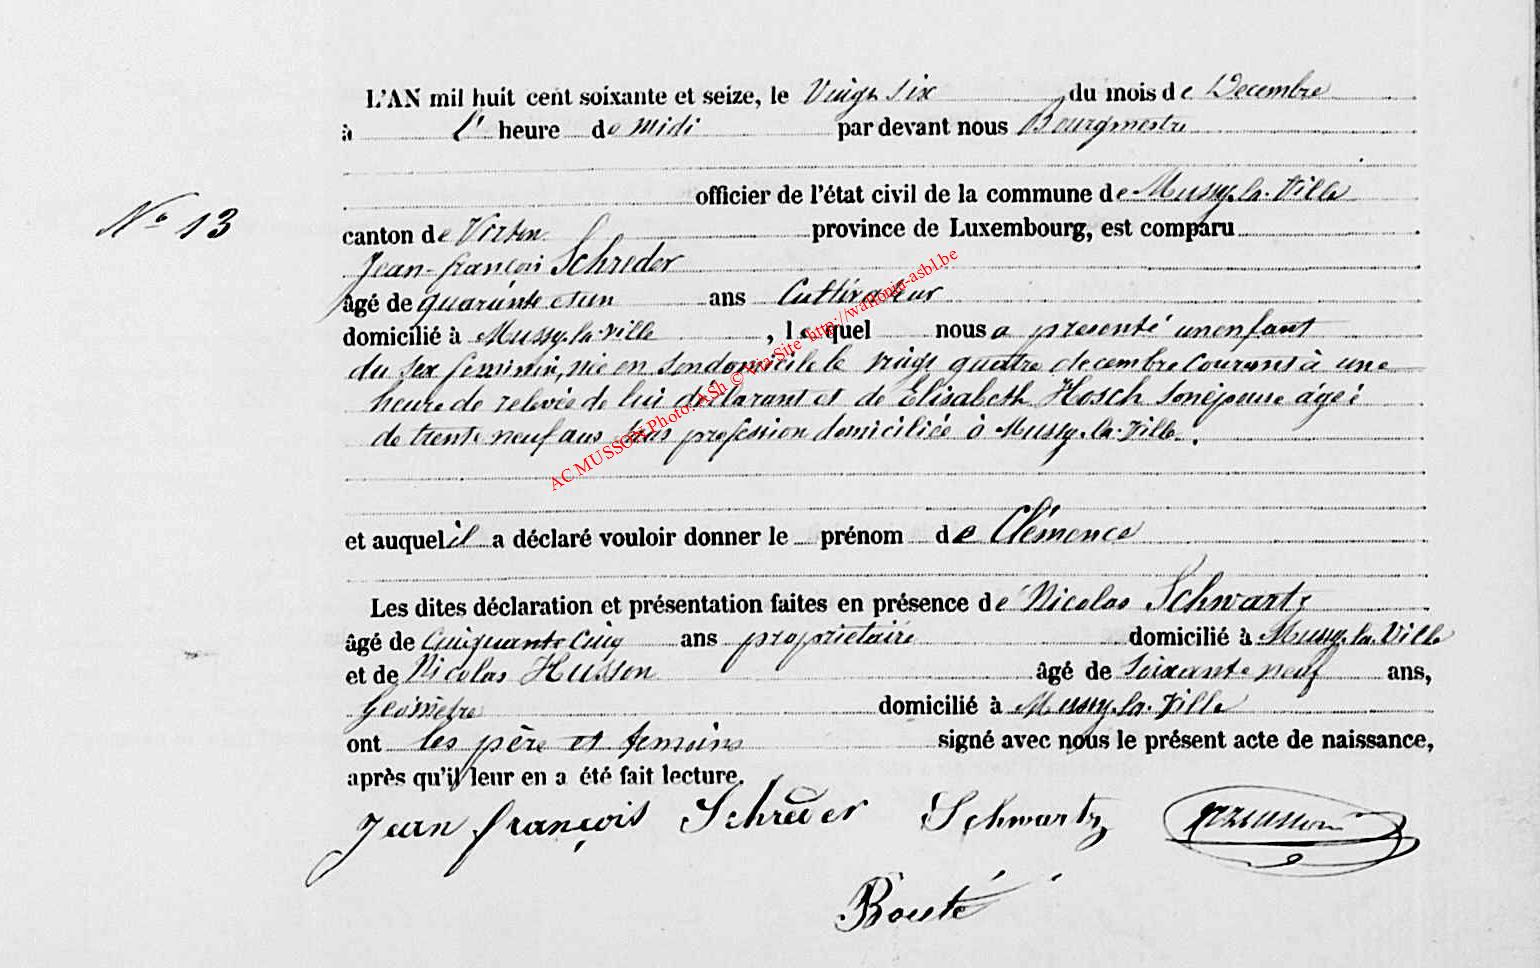 L'AN mil huit cent soixante et seize, le Vingt six du mois de Decembre
à l' heure de midi par devant nous Bourgmestre
officier de l'état civil de la commune de Mussy-la-Ville
N° 13
canton de Virton province de Luxembourg, est comparu
Jean-françois Schreder
âgé de quarante etun ans Cultivateur
domicilié à Mussy-la-ville, lequel nous a presenté un enfant
du sex feminin, née en son domicile le vingt quatre decembre courant à une
heure de relevée de lui déclarant et de Elisabeth Hosch son épouse âgée
de trente neuf ans sans profession domiciliée à Mussy-la-Ville.
et auquel il a déclaré vouloir donner le prénom de Clémence
Les dites déclaration et présentation faites en présence de Nicolas Schwartz
âgé de Cinquante Cinq ans propriétaire domicilié à Mussy-la-Ville
et de Nicolas Husson âgé de Soixante neuf ans,
Géomètre domicilié à Mussy-la-Ville
ont les père et temoins signé avec nous le présent acte de naissance,
après qu'il leur en a été fait lecture.
Jean françois Schreder Schwartz Husson
Bouté
AC MUSSON Photo: ASh © Via Site http://wallonia-asbl.be